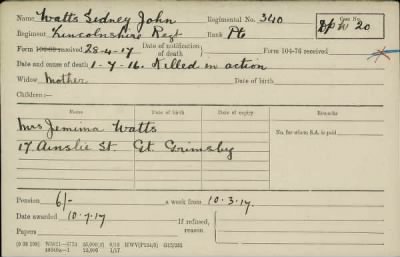 Name Watts Sidney John Regimental No. 340 Case No.
Regiment Lincolnshire Regt Rank Pte 20
Form 103-88 received 28-4-17 Date of notification of death Form 104-76 received
Date and cause of death 1-7-16. Killed in action
Widow Mother Date of birth
Children:—
NAME Date of birth Date of expiry REMARKS
Mrs Jemima Watts
No. for whom S.A. is paid
17 Ainslie St. Gt. Grimsby
Pension 6/- a week from 10.3.17.
Date awarded 10.7.17 If refused, reason
Papers